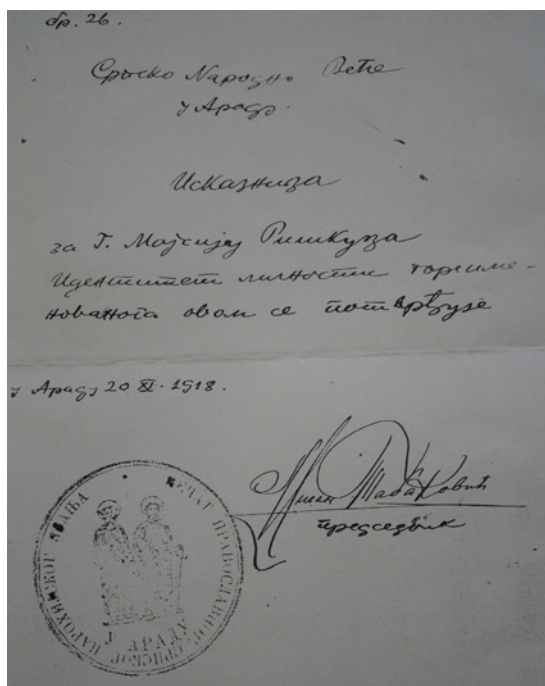 бр. 26.
Српско Народно Веће
у Араду.
Исказница
за Г. Мојсију
Идентитет личности горе име-
нованога овом се потврђује
у Араду 20 XI. 1918.
Милан Табаковић
председник
ПЕЧАТ ПРАВОСЛАВНОГ СРПСКОГ ПАРОХИЈСКОГ ЗВАЊА
У АРАДУ